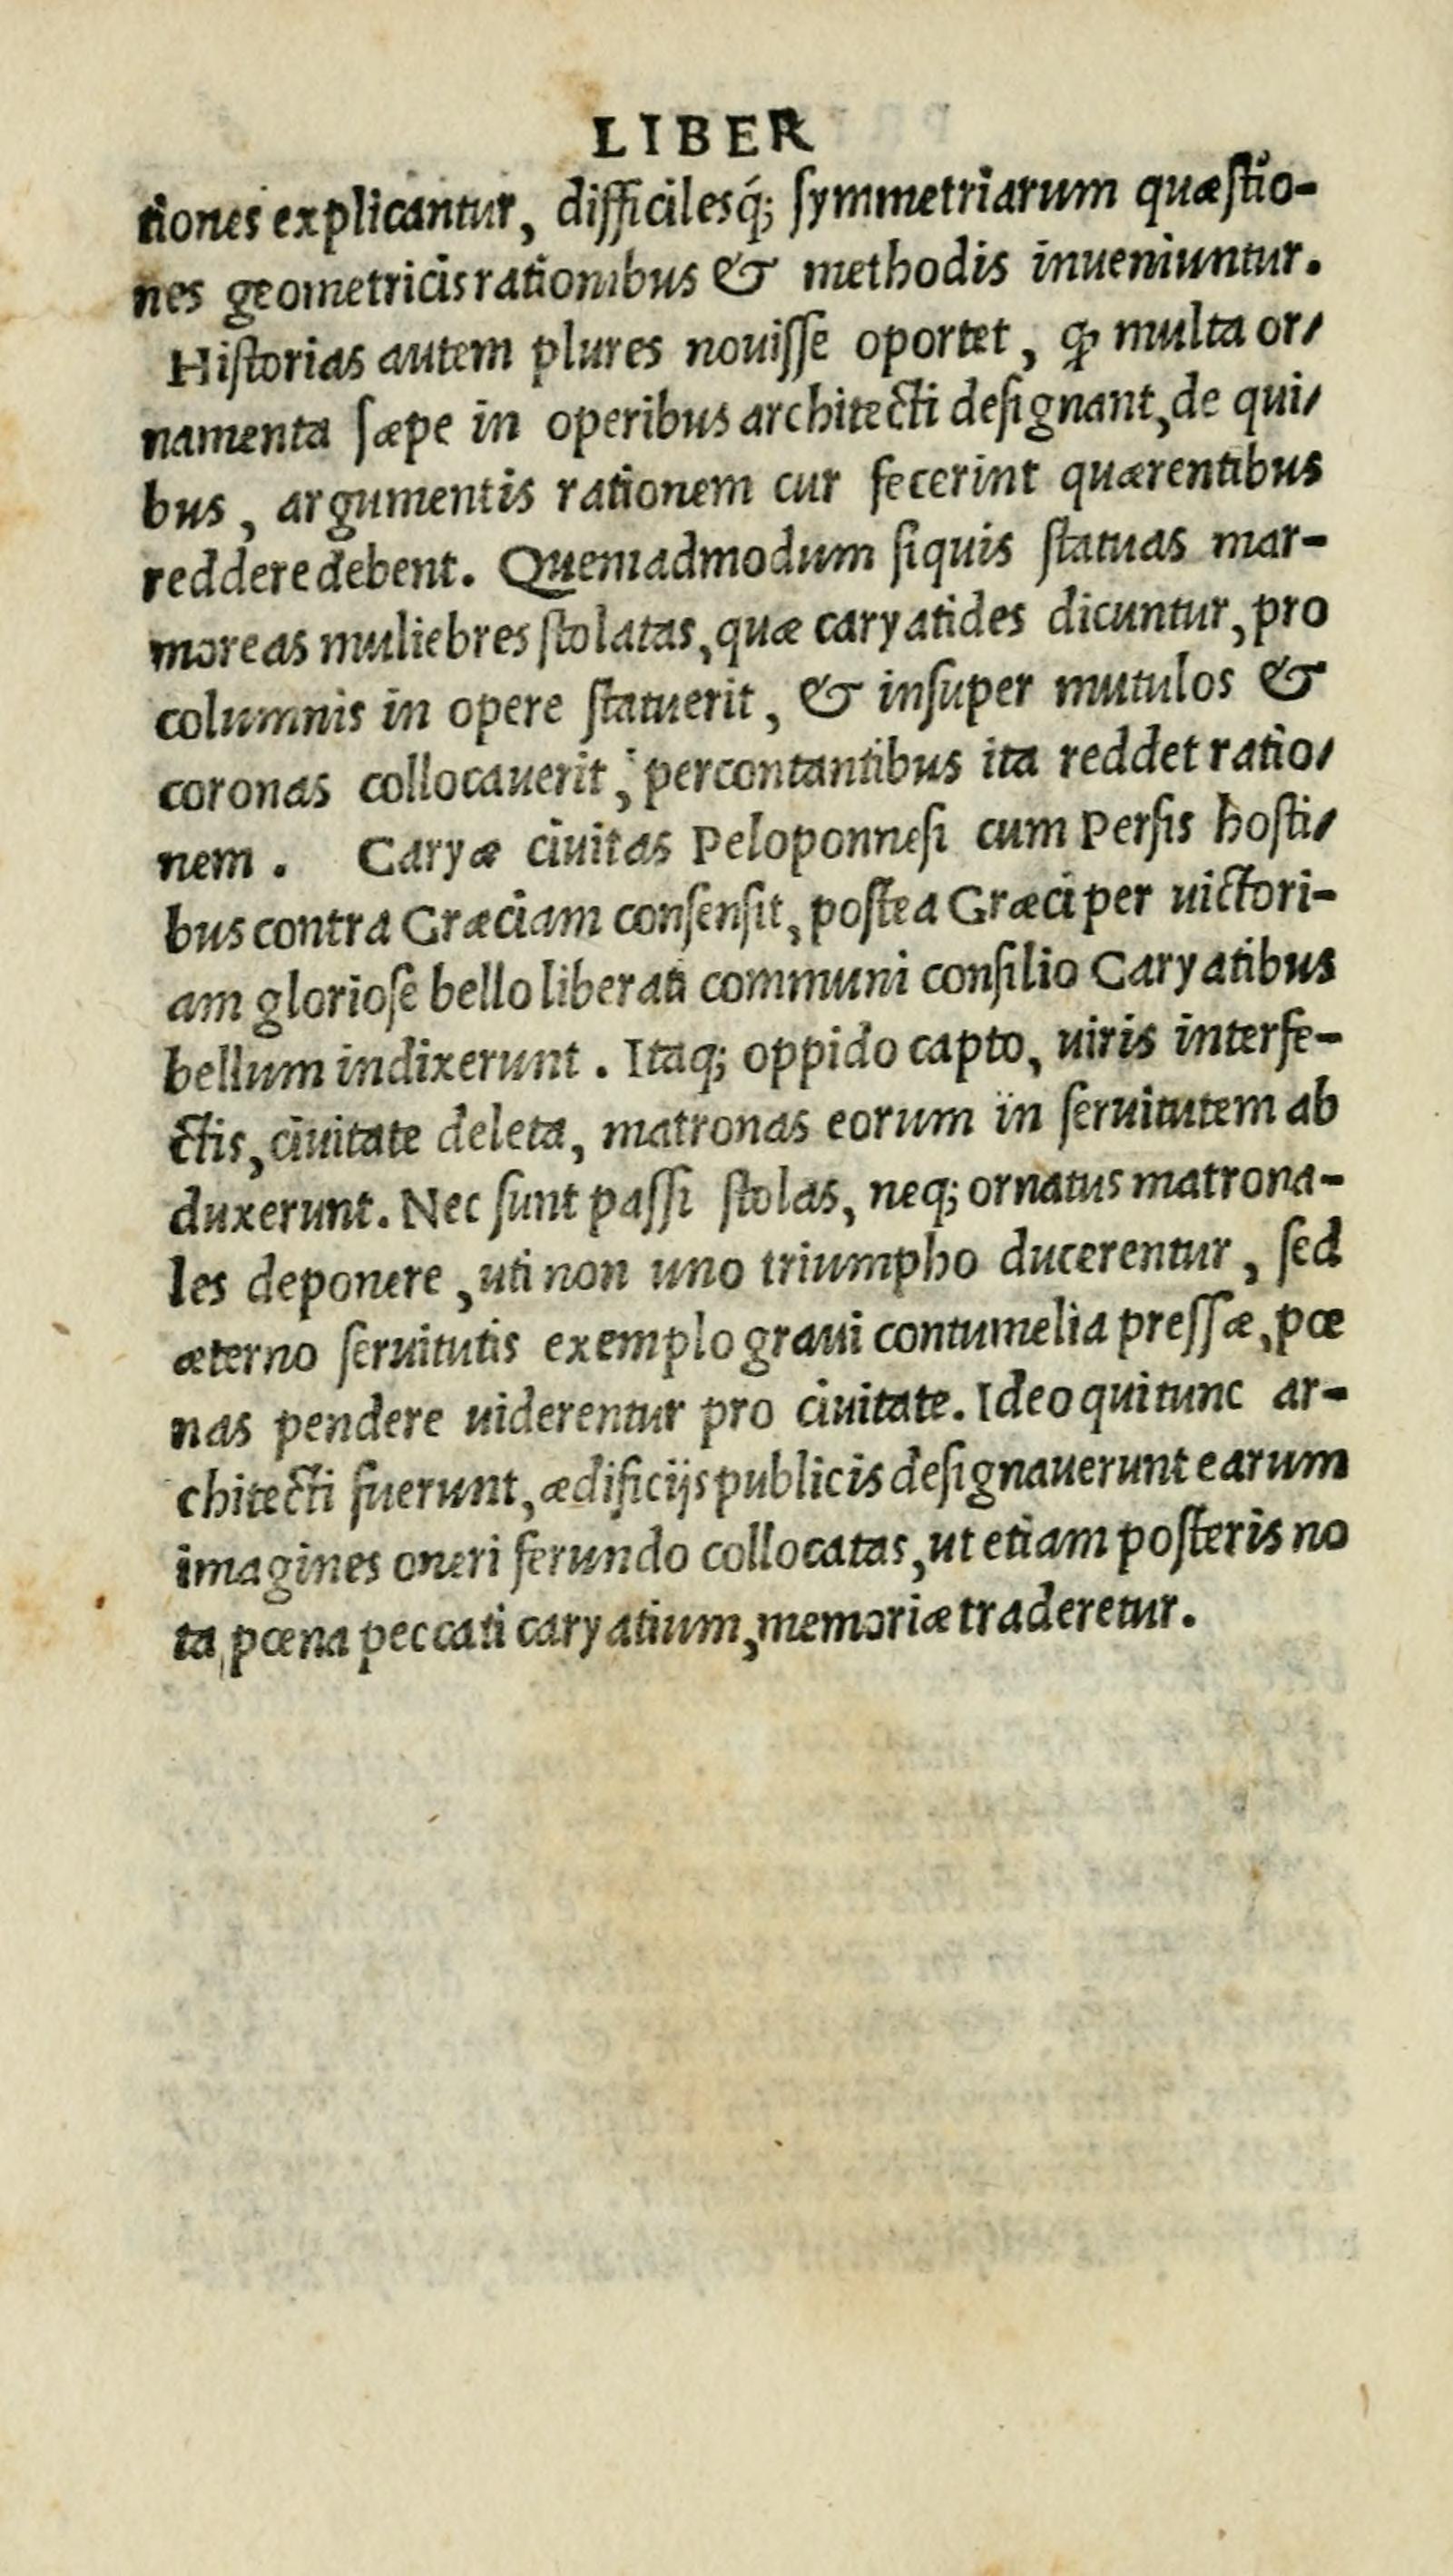 LIBER
tiones explicantur, difficilesq́; ſymmetriarum quæſtio-
nes geometricis rationibus & methodis inueniuntur.
Hiſtorias autem plures nouiſſe oportet, ꝙ multa or/
namenta ſæpe in operibus architecti deſignant, de qui/
bus, argumentis rationem cur fecerint quærentibus
reddere debent. Quemadmodum ſiquis ſtatuas mar-
moreas muliebres ſtolatas, quæ caryatides dicuntur, pro
columnis in opere ſtatuerit, & inſuper mutulos &
coronas collocauerit, percontantibus ita reddet ratio/
nem. Caryæ ciuitas Peloponneſi cum Perſis hoſti/
bus contra Græciam conſenſit, poſtea Græci per uictori-
am glorioſe bello liberati communi conſilio Caryatibus
bellum indixerunt. Itaq; oppido capto, uiris interfe-
ctis, ciuitate deleta, matronas eorum in ſeruitutem ab
duxerunt. Nec ſunt paſſi ſtolas, neq; ornatus matrona-
les deponere, uti non uno triumpho ducerentur, ſed
æterno ſeruitutis exemplo graui contumelia preſſæ, pœ
nas pendere uiderentur pro ciuitate. Ideo qui tunc ar-
chitecti fuerunt, ædificijs publicis deſignauerunt earum
imagines oneri ferundo collocatas, ut etiam poſteris no
ta pœna peccati caryatium, memoriæ traderetur.